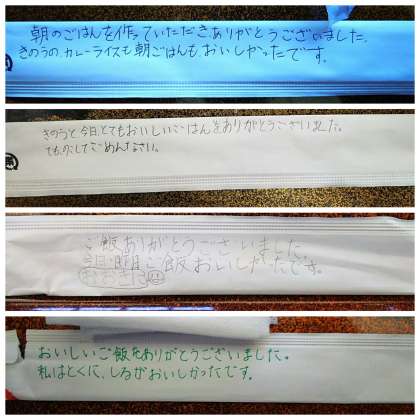 朝のごはんを作っていただきありがとうございました。
きのうの、カレーライスも朝ごはんも、おいしかったです。
きのうと今日、とてもおいしいごはんをありがとうございました。
でも、のこしてごめんなさい。
ご飯ありがとうございました
今日・昨日ご飯おいしかったです。
おおきに
おいしいご飯をありがとうございました。
私はとくに、しるがおいしかったです。